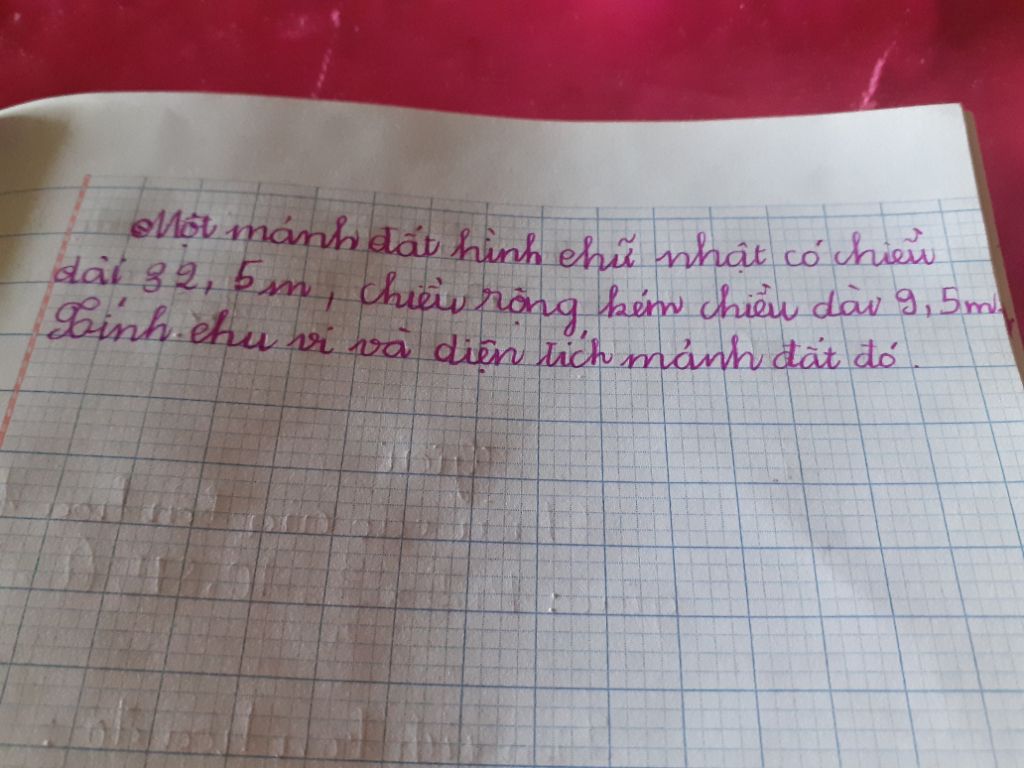 Một mảnh đất hình chữ nhật có chiều
dài 32,5m, chiều rộng kém chiều dài 9,5m.
Tính chu vi và diện tích mảnh đất đó.